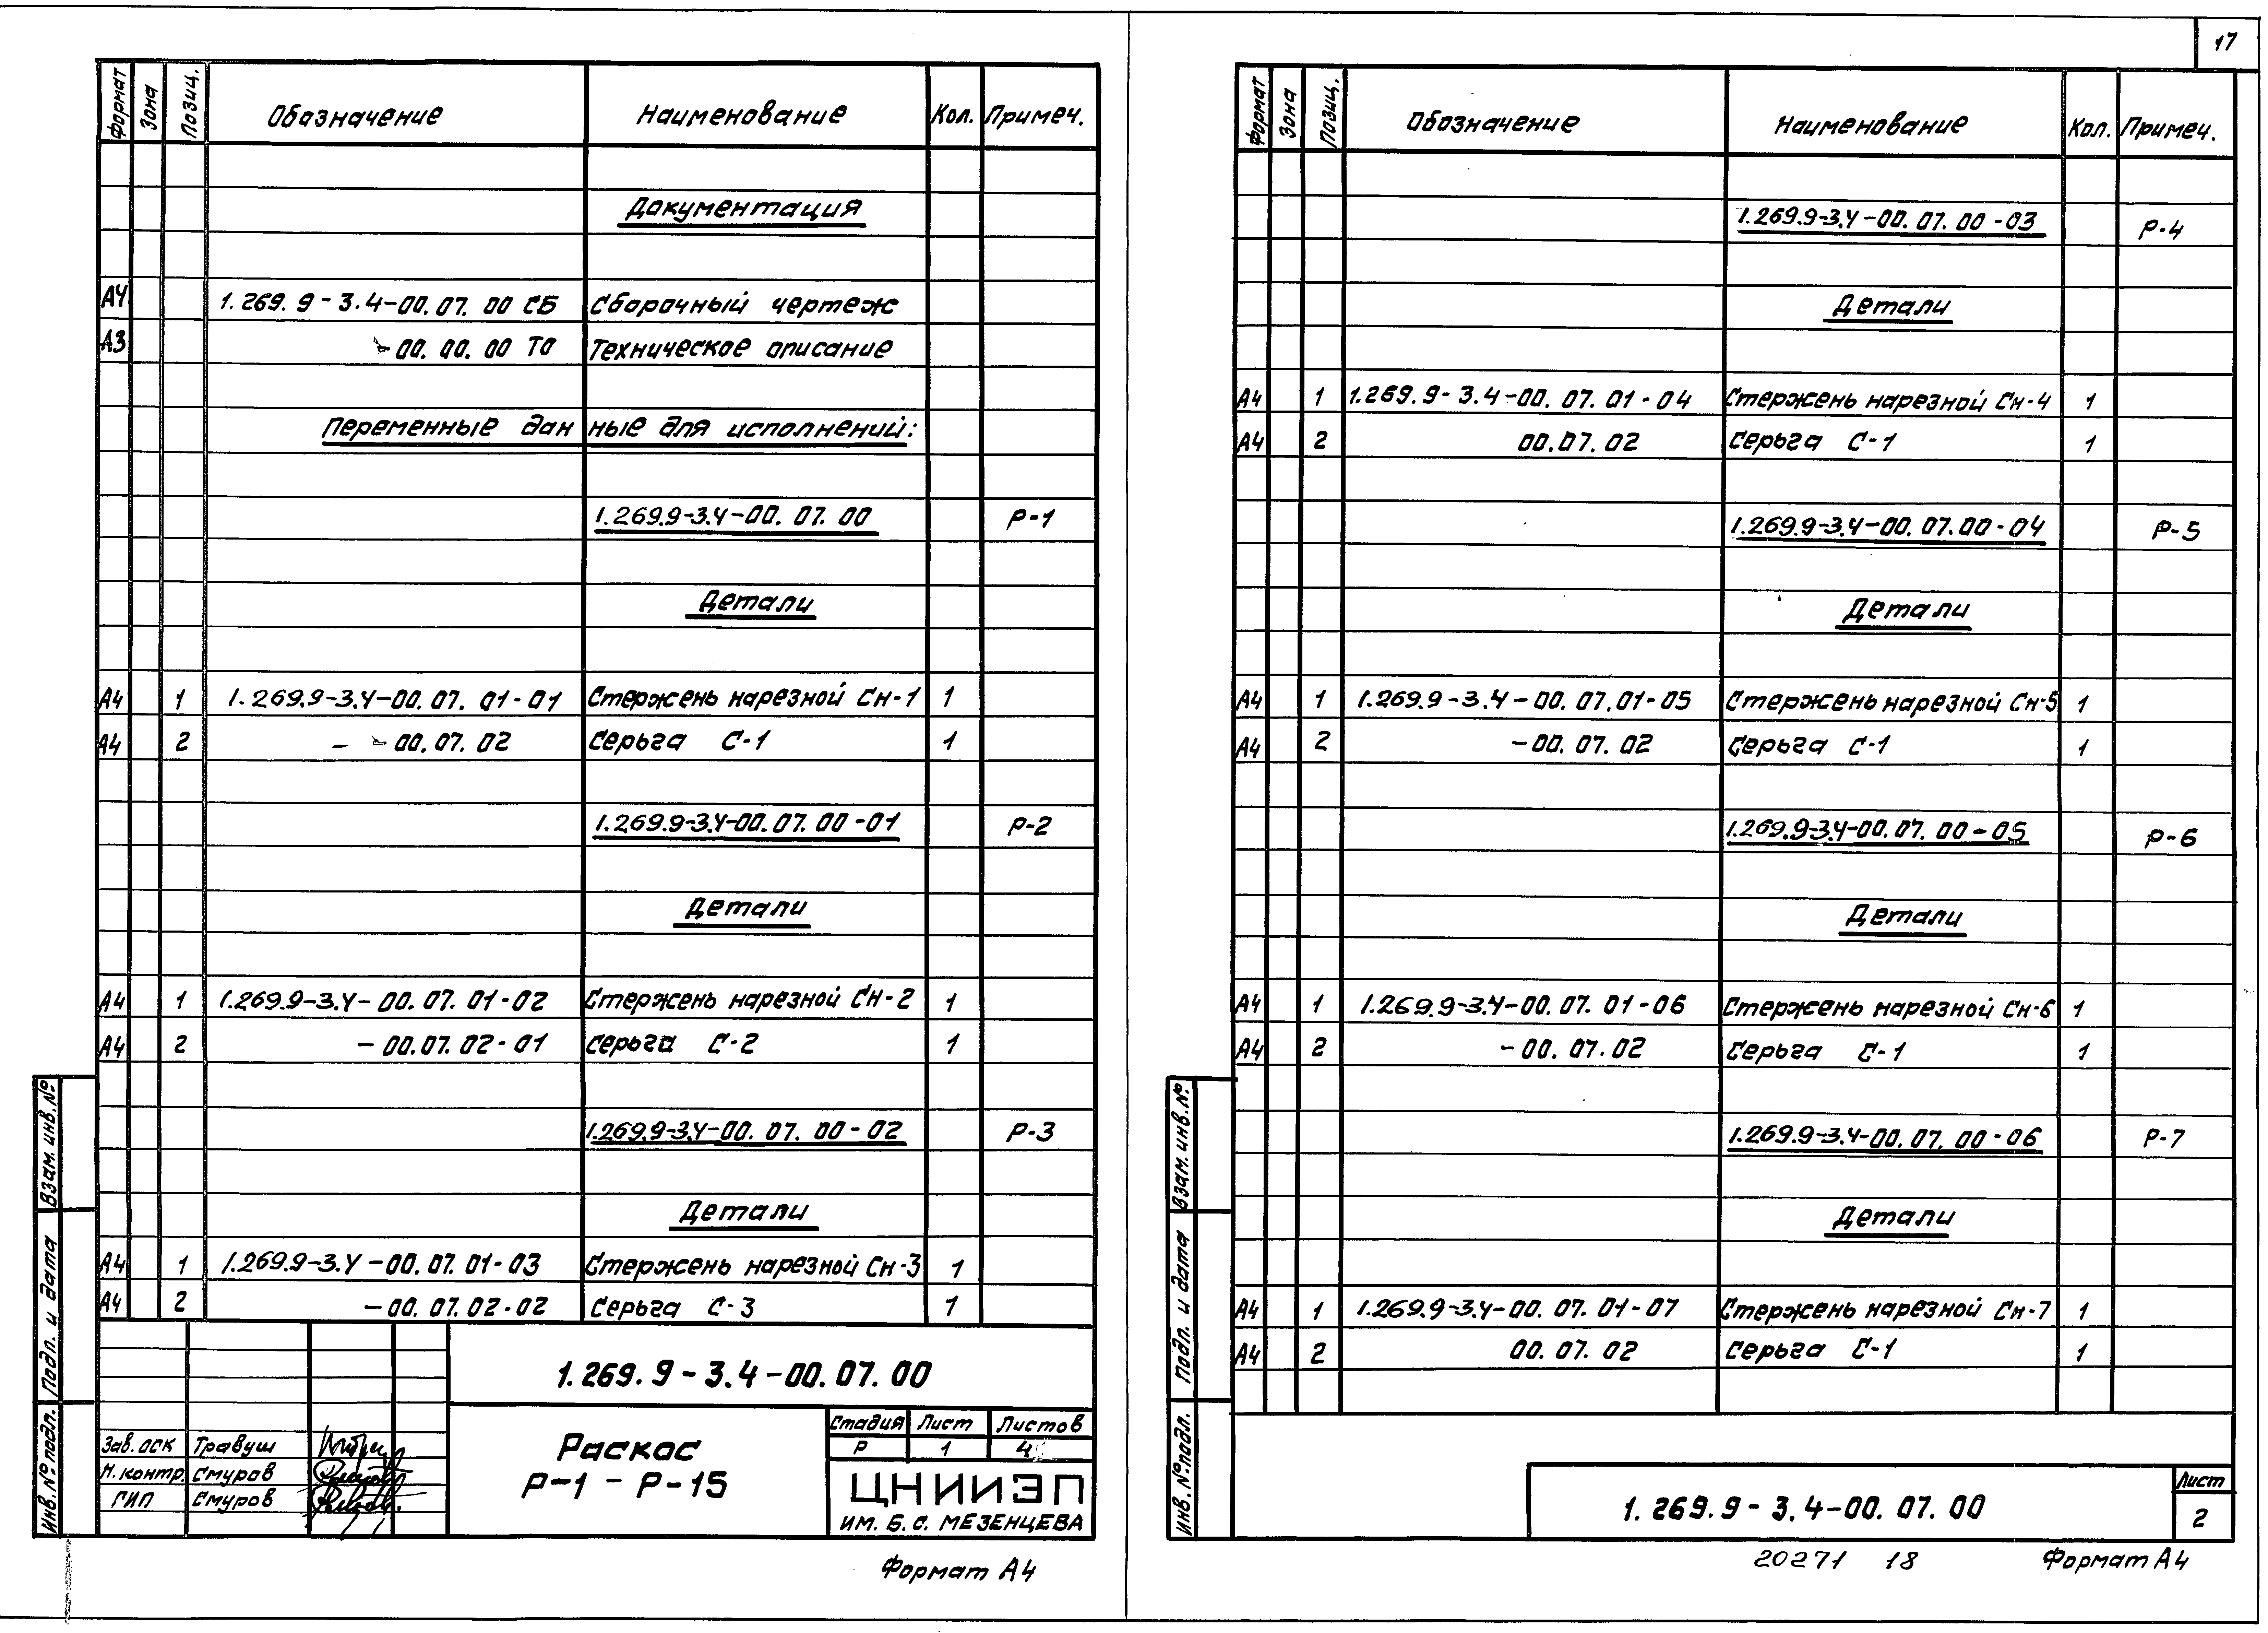 17
Формат Зона Позиц. Обозначение Наименование Кол. Примеч.
Документация
А4 1.269.9-3.4-00.07.00 СБ Сборочный чертеж
А3 -00.00.00 ТО Техническое описание
Переменные данные для исполнений:
1.269.9-3.4-00.07.00 Р-1
Детали
А4 1 1.269.9-3.4-00.07.01-01 Стержень нарезной Сн-1 1
А4 2 - -00.07.02 Серьга С-1 1
1.269.9-3.4-00.07.00-01 Р-2
Детали
А4 1 1.269.9-3.4-00.07.01-02 Стержень нарезной Сн-2 1
А4 2 -00.07.02-01 Серьга С-2 1
1.269.9-3.4-00.07.00-02 Р-3
Детали
А4 1 1.269.9-3.4-00.07.01-03 Стержень нарезной Сн-3 1
А4 2 -00.07.02-02 Серьга С-3 1
1.269.9-3.4-00.07.00
Зав. ОСК Травуш
Н.контр. Смуров
ГИП Смуров
Раскос
Р-1 - Р-15
Стадия Лист Листов
Р 1 4
ЦНИИЭП
ИМ. Б.С. МЕЗЕНЦЕВА
Взам. инв. №
Подп. и дата
Инв. № подл.
Формат А4
Формат Зона Позиц. Обозначение Наименование Кол. Примеч.
1.269.9-3.4-00.07.00-03 Р-4
Детали
А4 1 1.269.9-3.4-00.07.01-04 Стержень нарезной Сн-4 1
А4 2 00.07.02 Серьга С-1 1
1.269.9-3.4-00.07.00-04 Р-5
Детали
А4 1 1.269.9-3.4-00.07.01-05 Стержень нарезной Сн-5 1
А4 2 -00.07.02 Серьга С-1 1
1.269.9-3.4-00.07.00-05 Р-6
Детали
А4 1 1.269.9-3.4-00.07.01-06 Стержень нарезной Сн-6 1
А4 2 -00.07.02 Серьга С-1 1
1.269.9-3.4-00.07.00-06 Р-7
Детали
А4 1 1.269.9-3.4-00.07.01-07 Стержень нарезной Сн-7 1
А4 2 00.07.02 Серьга С-1 1
Взам. инв. №
Подп. и дата
Инв. № подл.
1.269.9-3.4-00.07.00
Лист
2
20271 18
Формат А4